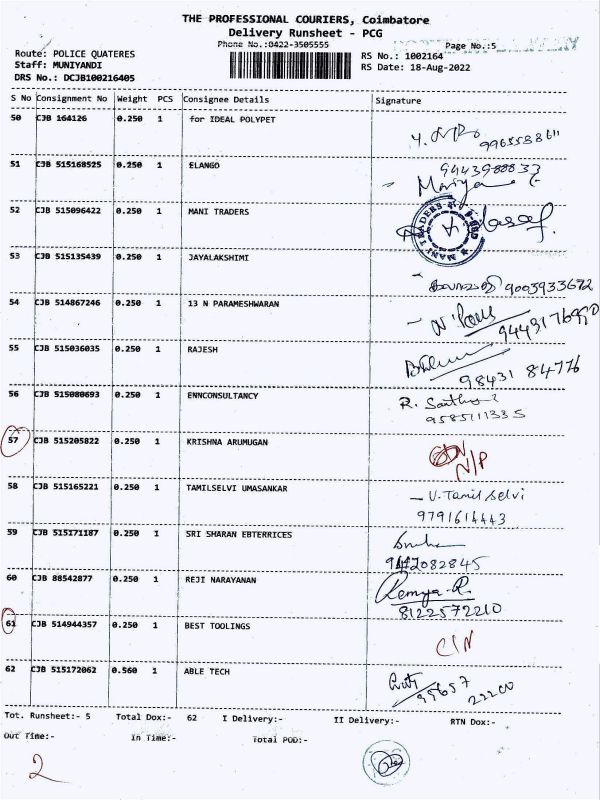 THE PROFESSIONAL COURIERS, Coimbatore
Delivery Runsheet - PCG
Phone No.:0422-3505555
Page No.:5
Route: POLICE QUATERES
RS No.: 1002164
Staff: MUNIYANDI
RS Date: 18-Aug-2022
DRS No.: DCJB100216405
S No Consignment No Weight PCS Consignee Details Signature
50 CJB 164126 0.250 1 for IDEAL POLYPET
51 CJB 515168525 0.250 1 ELANGO
52 CJB 515096422 0.250 1 MANI TRADERS
MANI TRADERS
53 CJB 515135439 0.250 1 JAYALAKSHIMI
9003933672
54 CJB 514867246 0.250 1 13 N PARAMESHWARAN
55 CJB 515036035 0.250 1 RAJESH
98431 84776
56 CJB 515080693 0.250 1 ENNCONSULTANCY
9585111335
57 CJB 515205822 0.250 1 KRISHNA ARUMUGAN
N/P
58 CJB 515165221 0.250 1 TAMILSELVI UMASANKAR
- V. Tamil Selvi
9791614443
59 CJB 515171187 0.250 1 SRI SHARAN EBTERRICES
60 CJB 88542877 0.250 1 REJI NARAYANAN
Remya. R.
8122572210
61 CJB 514944357 0.250 1 BEST TOOLINGS
C/N
62 CJB 515172062 0.560 1 ABLE TECH
Tot. Runsheet:- 5 Total Dox:- 62 I Delivery:- II Delivery:- RTN Dox:-
Out Time:- In Time:- Total POD:-
2